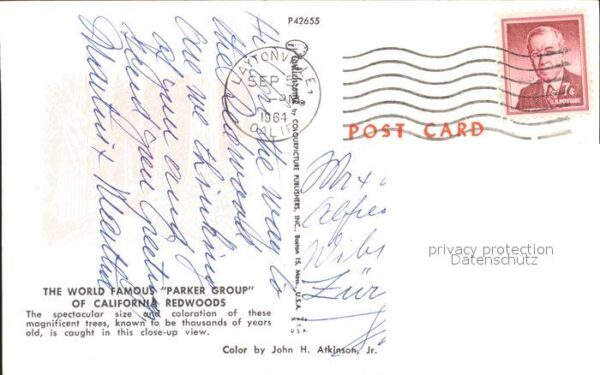 P42655
Hi! On the way to
the Redwoods
are we thinking
of you and
send you greetings
Plastichrome® by COLOURPICTURE PUBLISHERS, INC., Boston 15, Mass., U.S.A.
MADE IN U.S.A.
LAYTONVILLE,
SEP
PM
1964
CALIF.
7c
U.S. POSTAGE
POST CARD
Mr +
Alfred
Zür
privacy protection
Datenschutz
THE WORLD FAMOUS "PARKER GROUP"
OF CALIFORNIA REDWOODS
The spectacular size and coloration of these
magnificent trees, known to be thousands of years
old, is caught in this close-up view.
Color by John H. Atkinson, Jr.